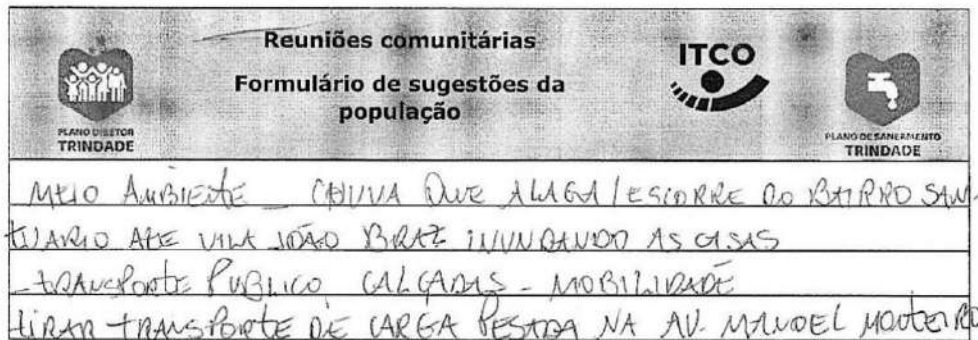 Reuniões comunitárias
Formulário de sugestões da
população
PLANO DIRETOR
TRINDADE
ITCO
PLANO DE SANEAMENTO
TRINDADE
MEIO AMBIENTE - CHUVA QUE ALAGA/ESCORRE DO BAIRRO SAN-
TUARIO ATE VILA JOÃO BRAZ INUNDANDO AS CASAS
- TRANSPORTE PUBLICO CALÇADAS - MOBILIDADE
TIRAR TRANSPORTE DE CARGA PESADA NA AV. MANOEL MONTEIRO